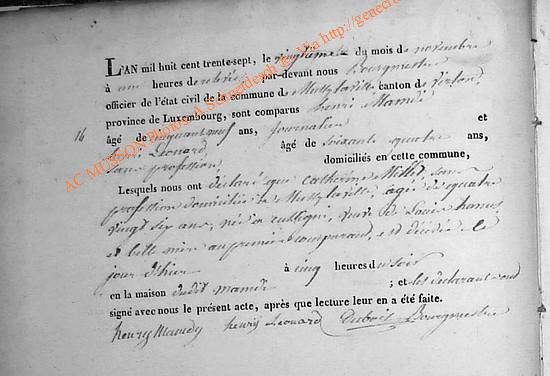 L'AN mil huit cent trente-sept, le vingtieme du mois de novembre
à une heures de par-devant nous Bourgmestre
officier de l'état civil de la commune de canton de Virton,
province de Luxembourg, sont comparus henri Mamdi
14 âgé de cinquante neuf ans, journalier et
henri Léonard âgé de soixante quatre ans,
sans profession domiciliés en cette commune,
Lesquels nous ont déclaré que catherine Millet, sans
profession domiciliée à agée de quatre
vingt six ans, née en veuve de Louis
et belle mère au premier comparant, est décédée le
jour d'hier à cinq heures du soir
en la maison dudit mamdi ; et les déclarant ont
signé avec nous le présent acte, après que lecture leur en a été faite.
henry Mamdy henry Léonard Dubois Bourgmestre
AC MUSSON Photos A Schnertzleigh @ Via http://genecra